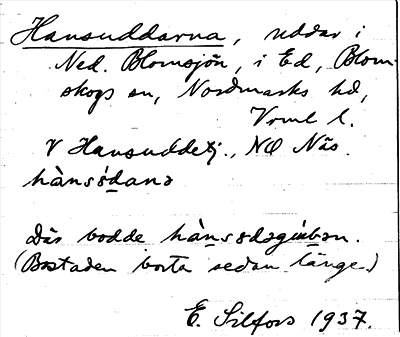 Hansuddarna, uddar i
Ned. Blomsjön, i Ed, Blom-
skogs sn, Nordmarks hd,
Vrml l.
V Hansuddetj., NO Näs.
hànsʹdanə
Där bodde hànsdəgubən.
(Bostaden borta sedan länge.)
E. Silfors 1937.